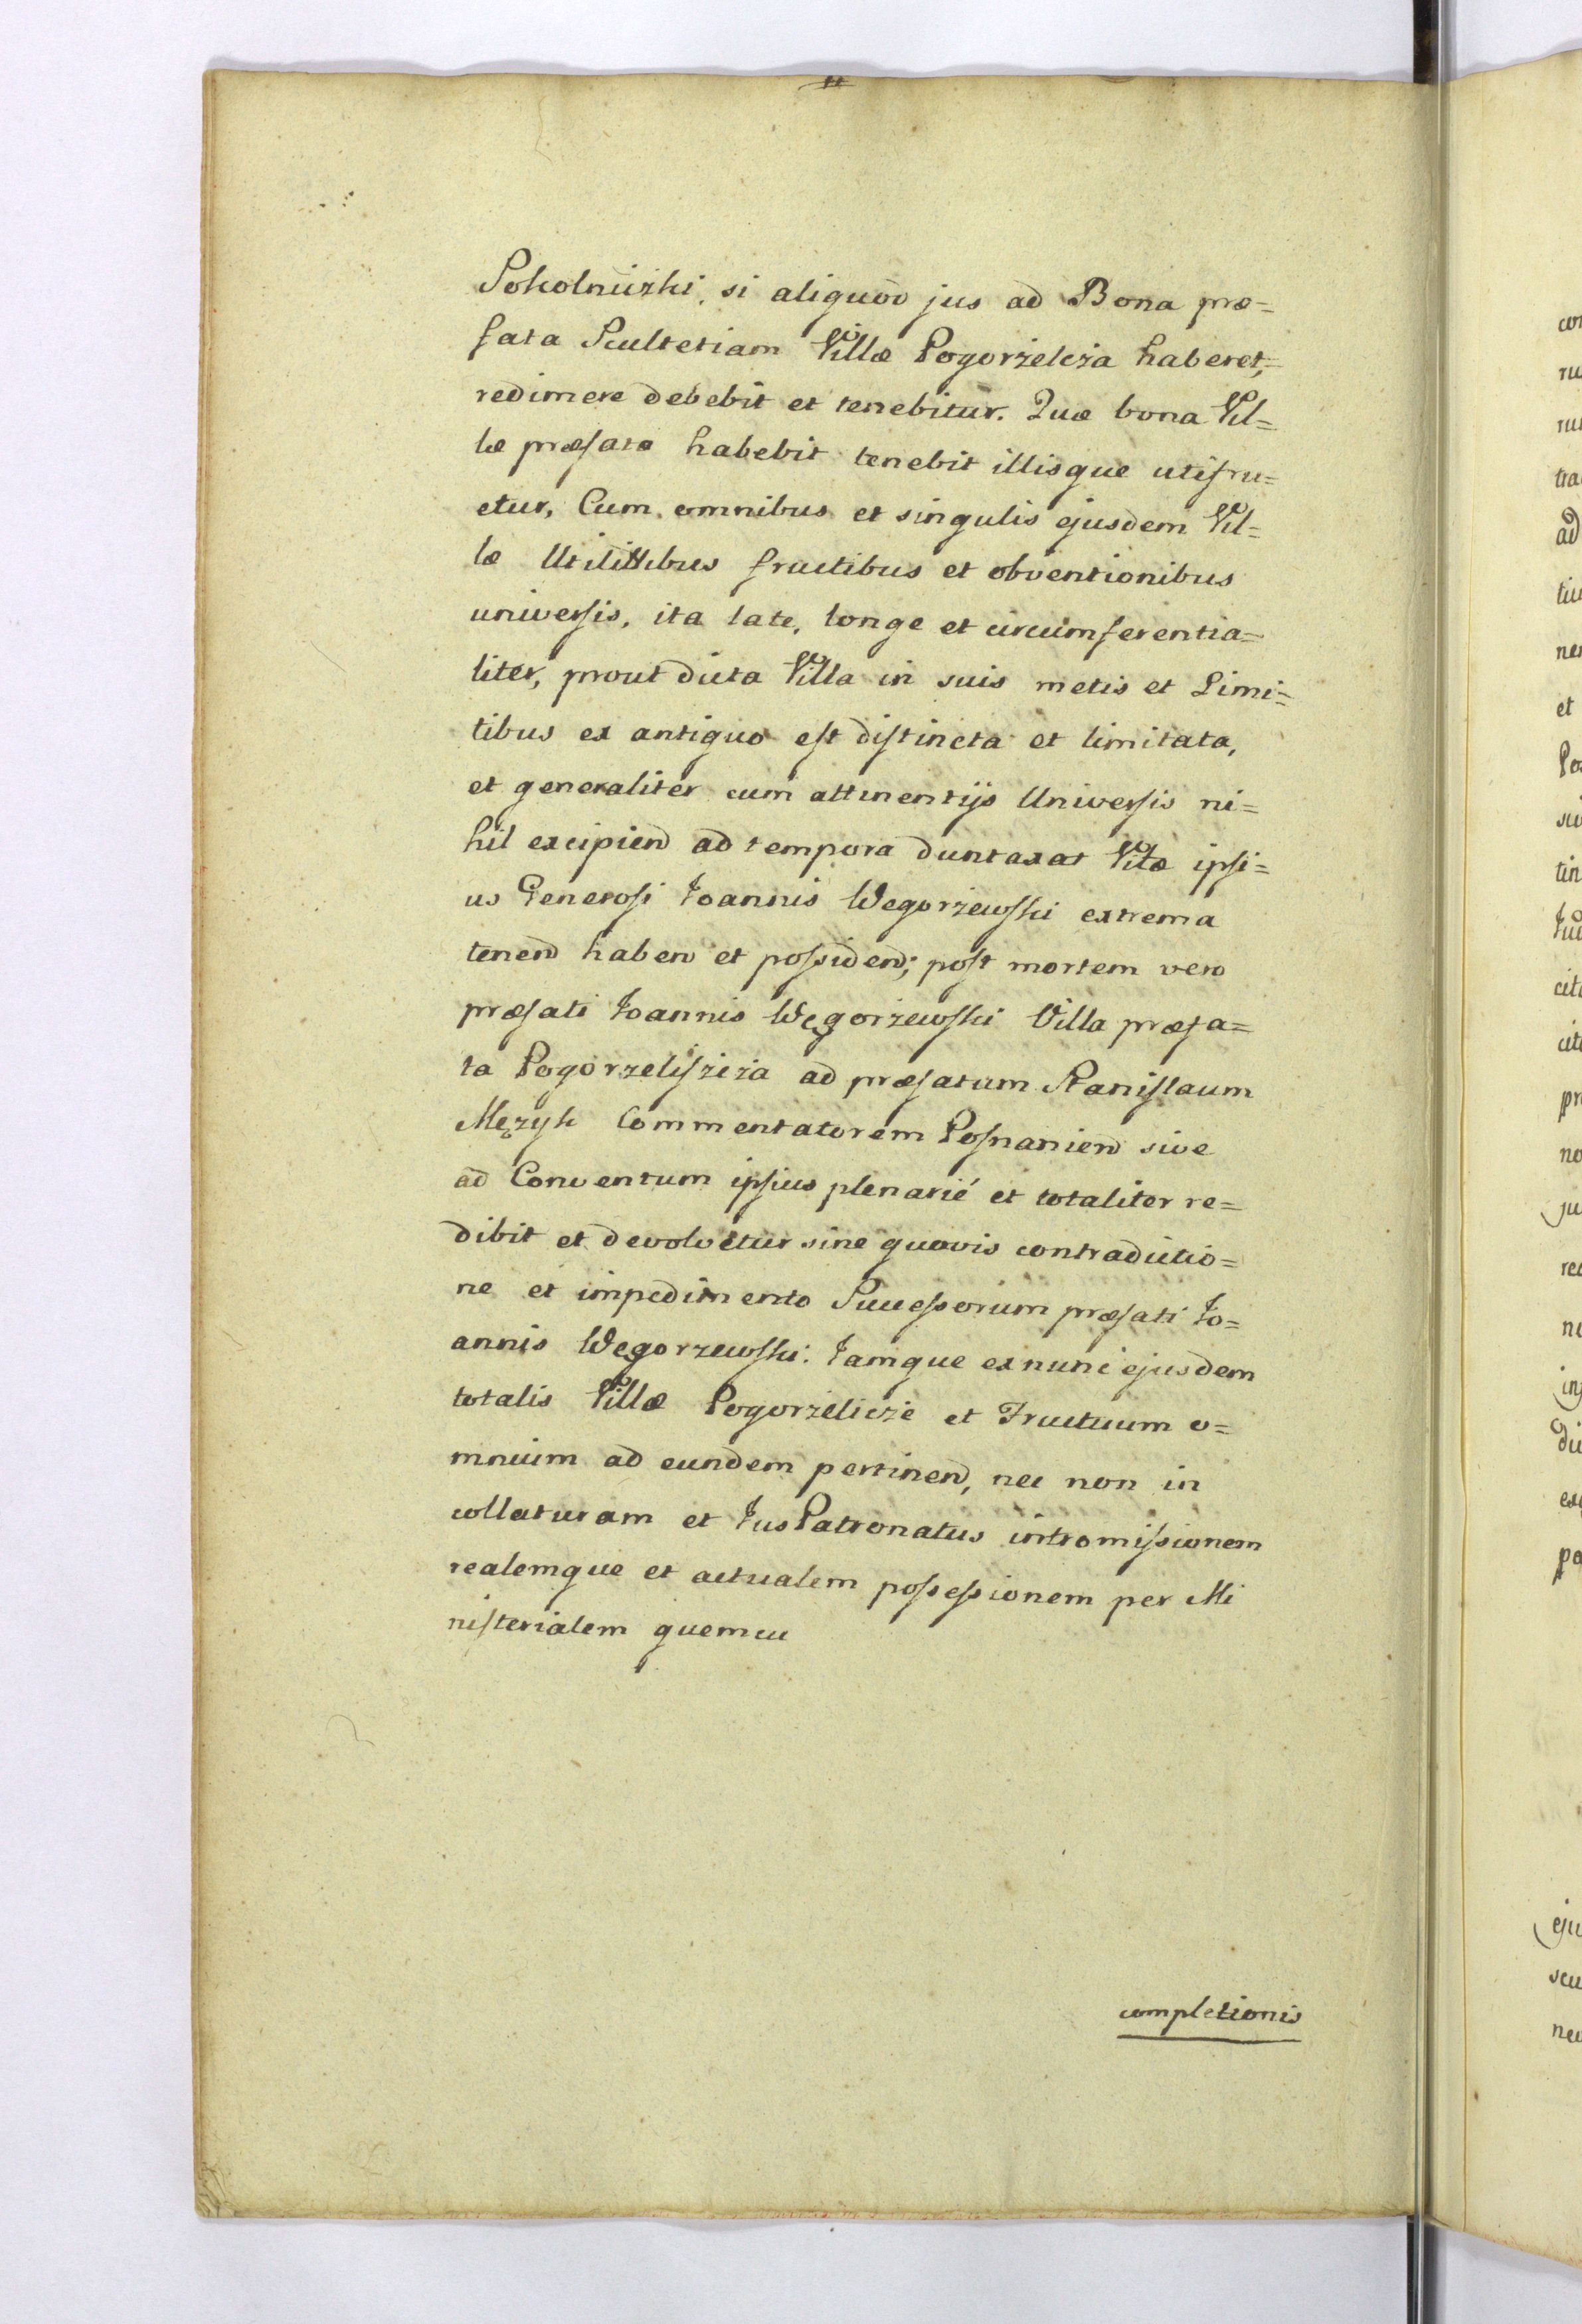 Sokolniczki, si aliquod jus ad Bona præ=
fata Scultetiam Villæ Pogorżelcża haberet,=
redimere debebit et tenebitur. Quæ bona Vil=
læ præfatæ habebit tenebit illisque utifru=
etur, Cum omnibus et singulis ejusdem Vil=
læ Utilittibus fructibus et obventionibus
universis, ita late, longe et circumferentia=
liter, prout dicta Villa in suis metis et Limi=
tibus ex antiquo est distincta et limitata,
et generaliter cum attinentijs Universis ni=
hil excipiend ad tempora duntaxat Vitæ ipsi=
us Generosi Joannis Wegorżewski extrema
tenend haben et possidend; post mortem vero
præfati Joannis Węgorżewski Villa præfa=
ta Pogorzeliszcża ad præfatum Stanislaum
Męzyk Commentatorem Posnaniend sive
ad Conventum ipsius plenarié et totaliter re=
dibit et devolvetur sine quovis contradictio=
ne et impedimento Successorum præfati Jo=
annis Wegorzewski. Jamque ex nunc ejusdem
totalis Villæ Pogorżelicże et Fructuum o=
mnium ad eundem pertinend, nec non in
collaturam et Jus Patronatus intromissionem
realemque et actualem possessionem per Mi
nisterialem quemcu
completionis
con
ru
tra
ad
tiu
ne
et
Po
tin
cit
pr
no
ju
rec
in
di
ex
po
eju
seu
nec